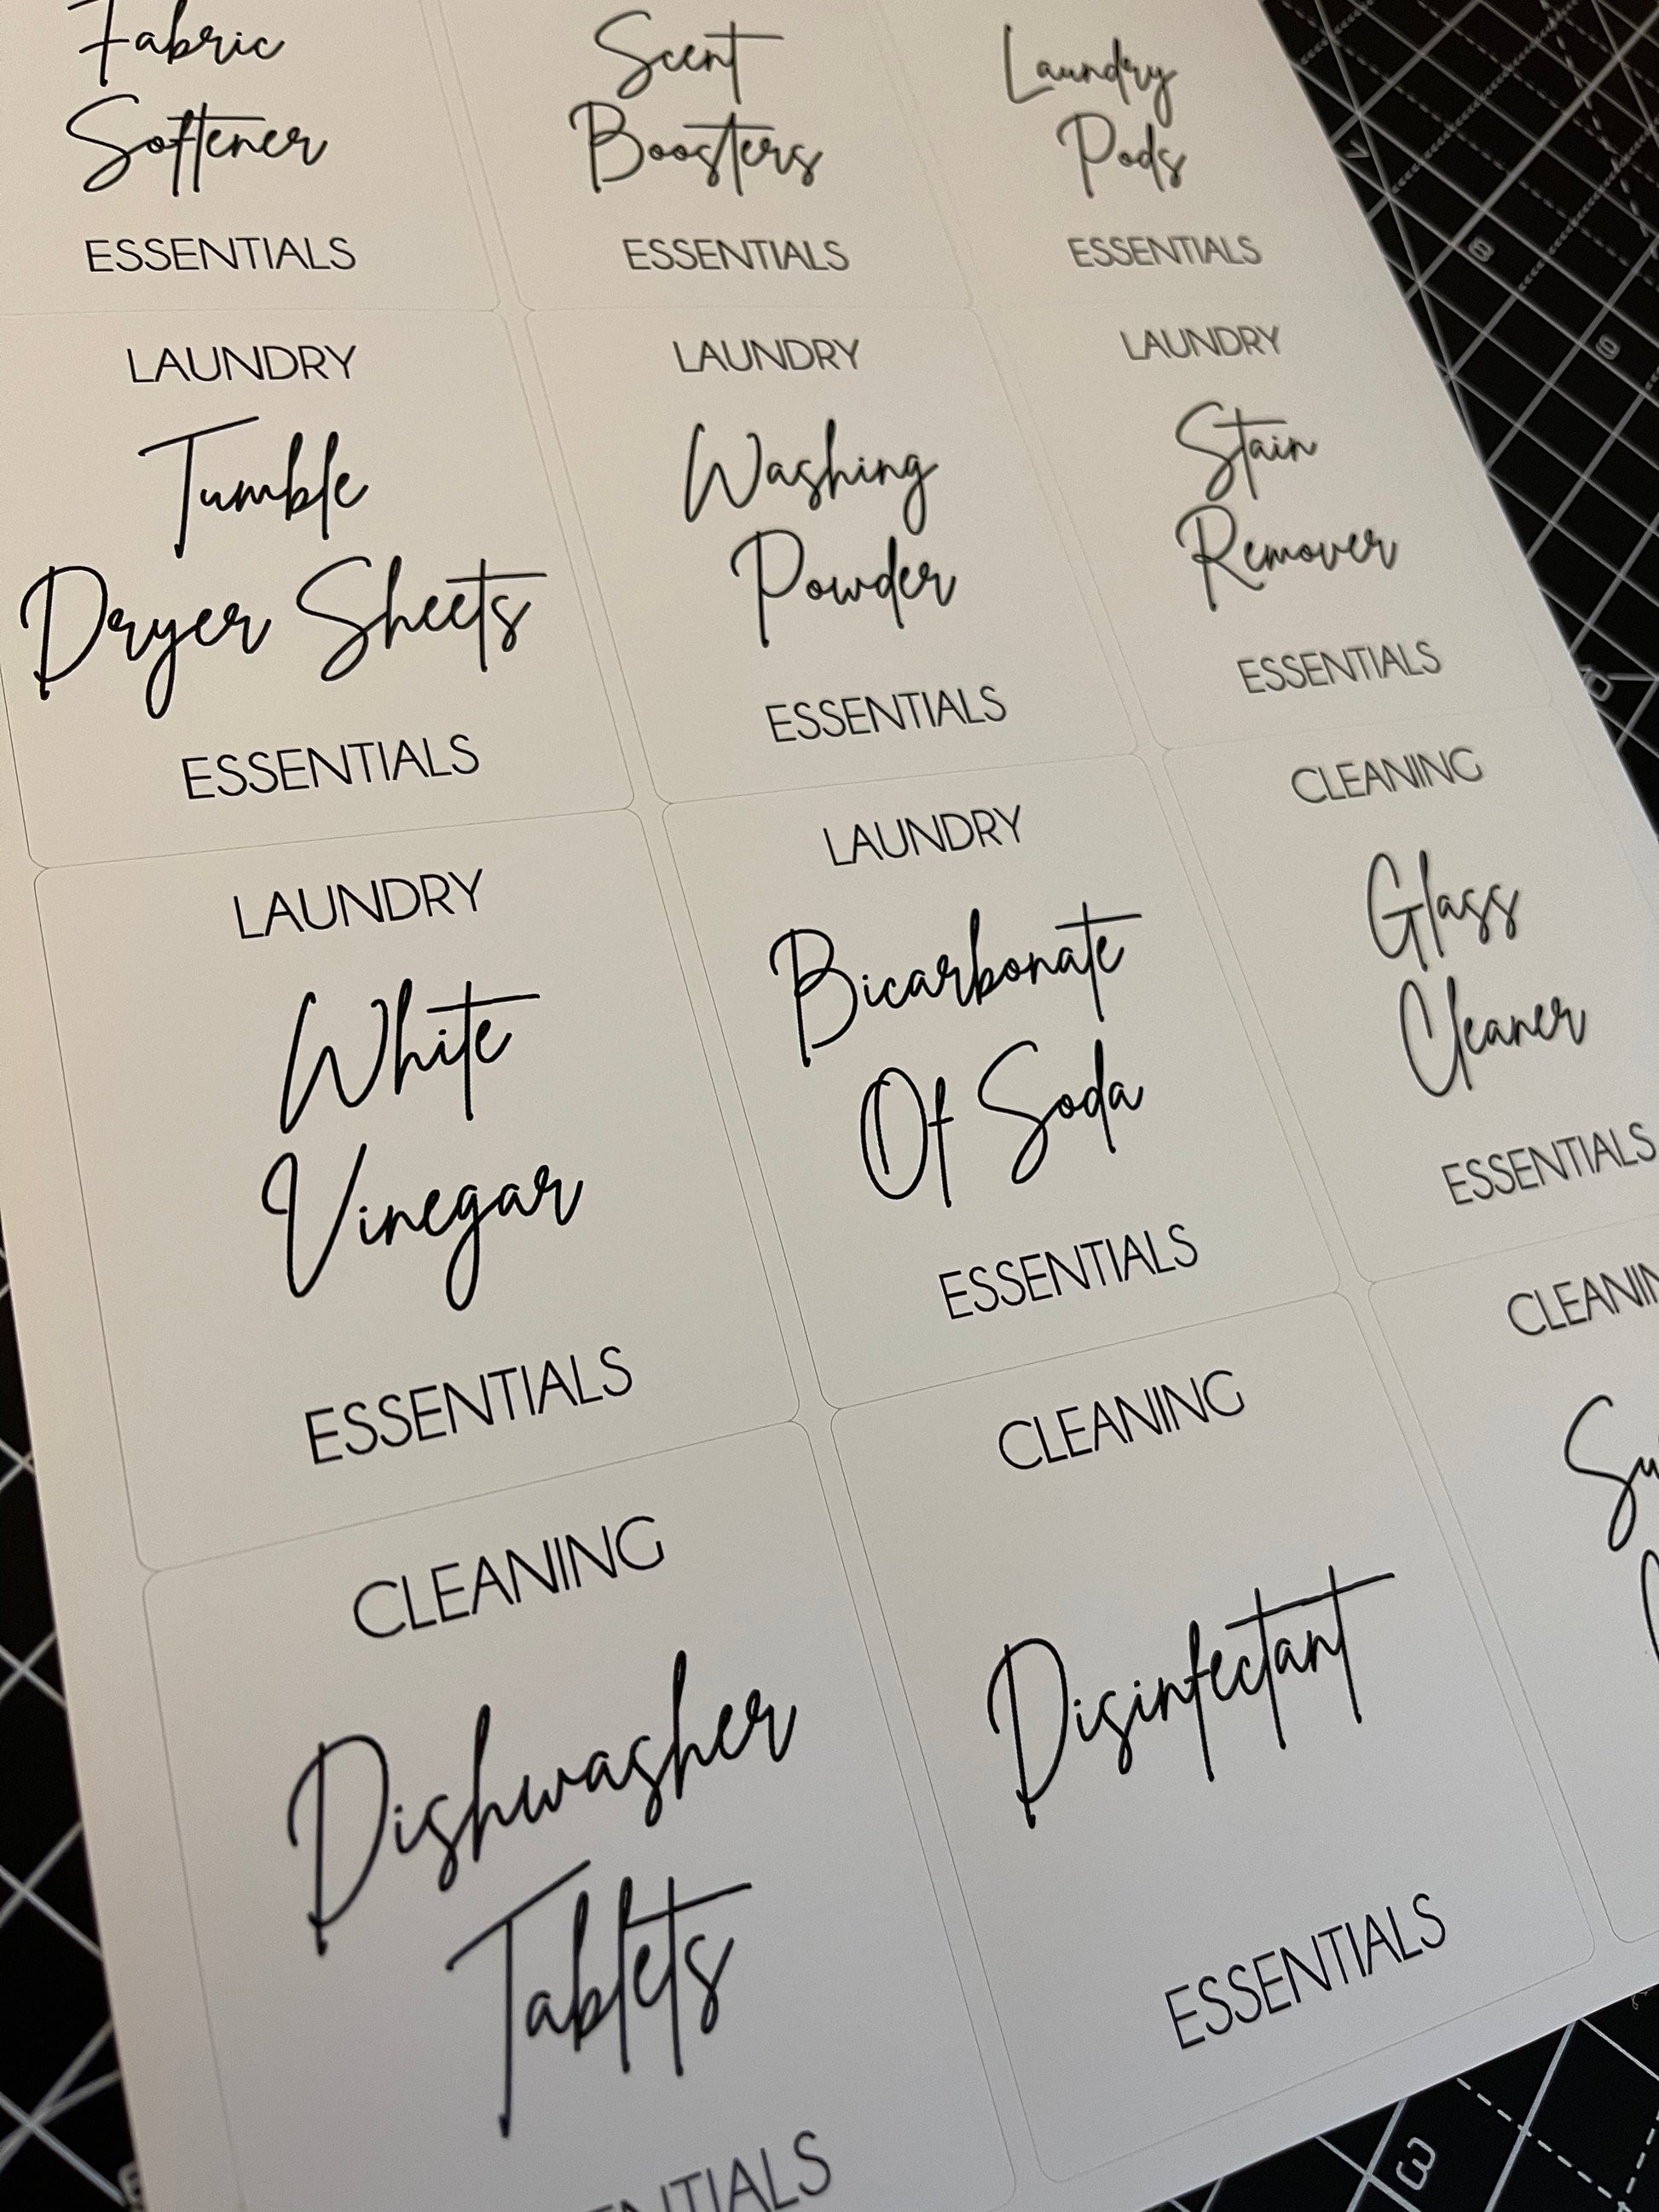 Fabric
Softener
ESSENTIALS
Scent
Boosters
ESSENTIALS
Laundry
Pods
ESSENTIALS
LAUNDRY
Tumble
Dryer Sheets
ESSENTIALS
LAUNDRY
Washing
Powder
ESSENTIALS
LAUNDRY
Stain
Remover
ESSENTIALS
LAUNDRY
White
Vinegar
ESSENTIALS
LAUNDRY
Bicarbonate
Of Soda
ESSENTIALS
CLEANING
Glass
Cleaner
ESSENTIALS
CLEANING
Dishwasher
Tablets
NTIALS
CLEANING
Disinfectant
ESSENTIALS
CLEANIN
Su
7
8
9
10
3